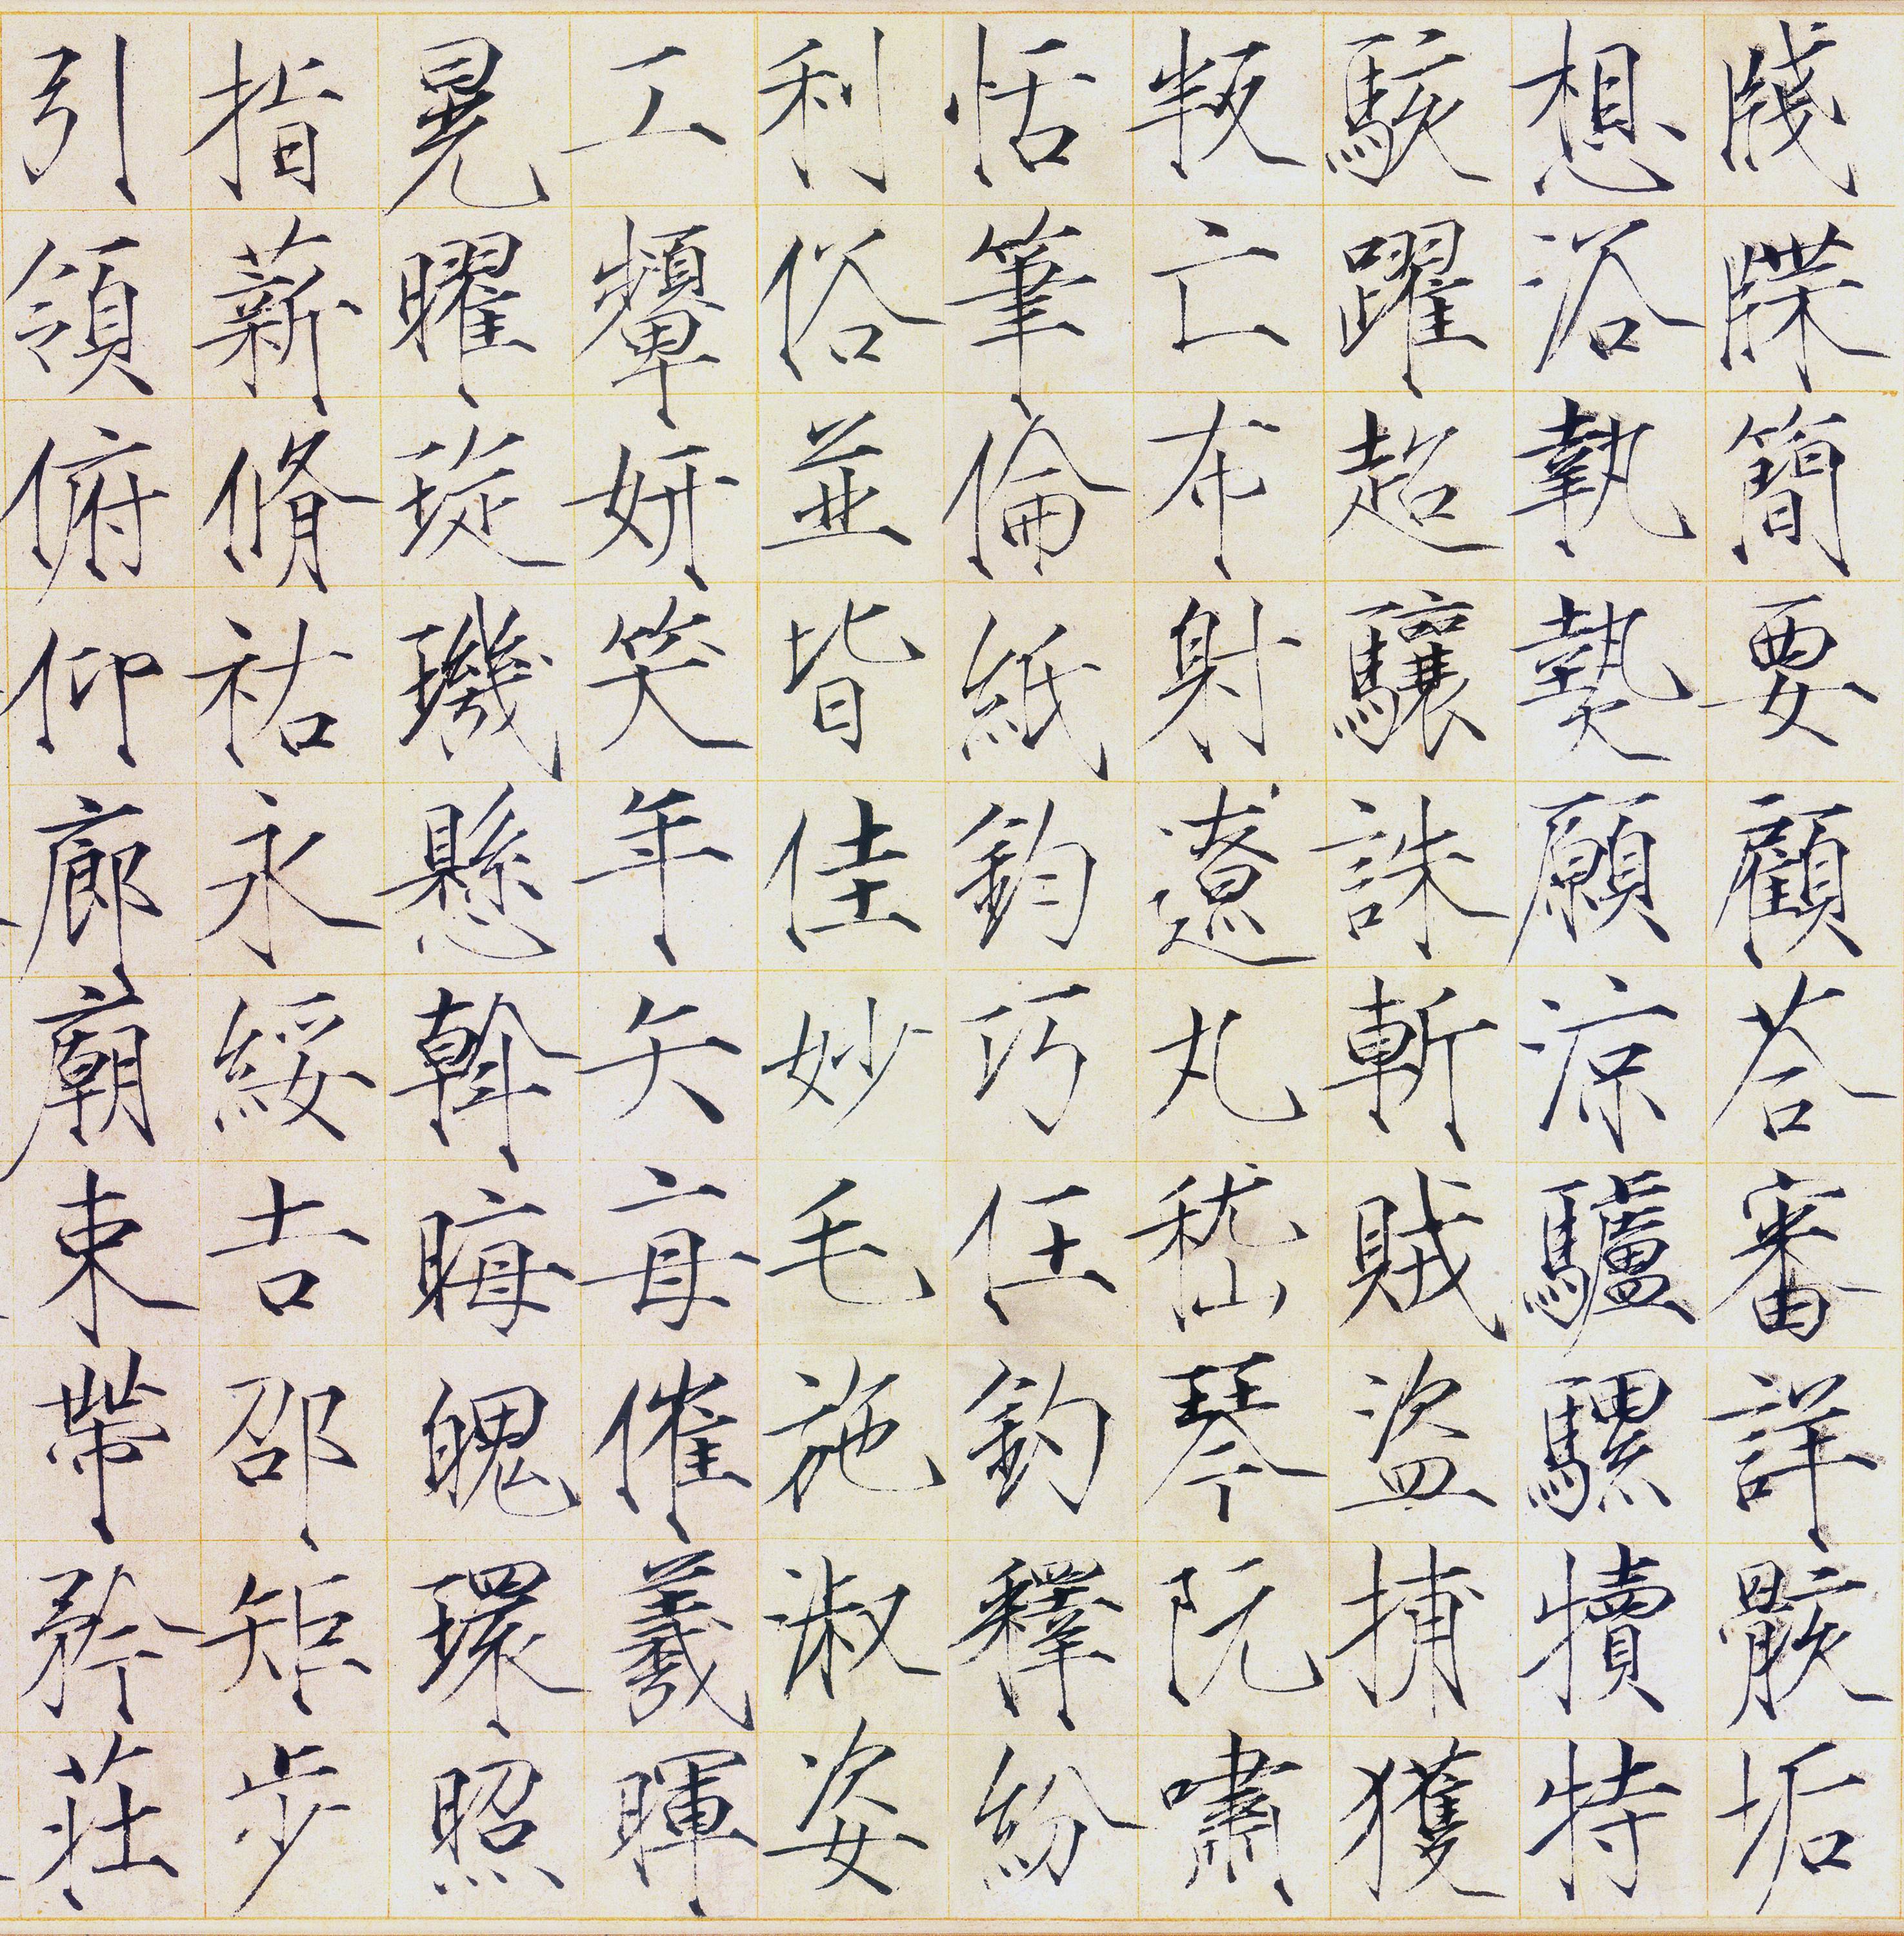 牋牒簡要顧荅審詳骸垢
想浴執熱願涼驢騾犢特
駭躍超驤誅斬賊盜捕獲
叛亡布射遼丸嵇琴阮嘯
恬筆倫紙鈞巧任釣釋紛
利俗並皆佳妙毛施淑姿
工顰妍笑年矢每催羲暉
晃曜琁璣懸斡晦魄環照
指薪脩祜永綏吉邵矩步
引領俯仰廊廟束帶矜莊